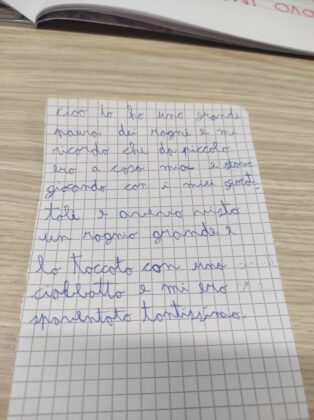 OVO IM
ciao io ho una grande
paura dei ragni e mi
ricordo che da piccolo
ero a casa mia e stavo
giocando con i miei giocat-
toli e avevo visto
un ragno grande e
lo toccato con una
ciabbatta e mi ero
spaventato tantissimo.